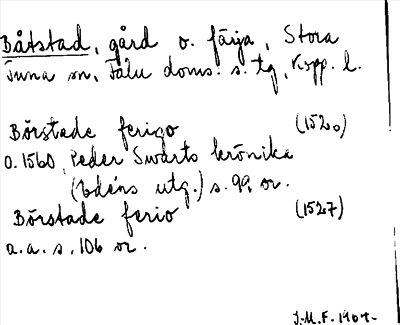 Båtstad, gård o. färja, Stora
Tuna sn, Falu doms. s. tg, Kopp. l.
Börstade ferigo (1520)
o. 1560, Peder Swarts krönika
(Edéns utg.) s. 99, or.
Börstade ferio (1527)
a.a. s. 106 or.
J.M.F. 1907.